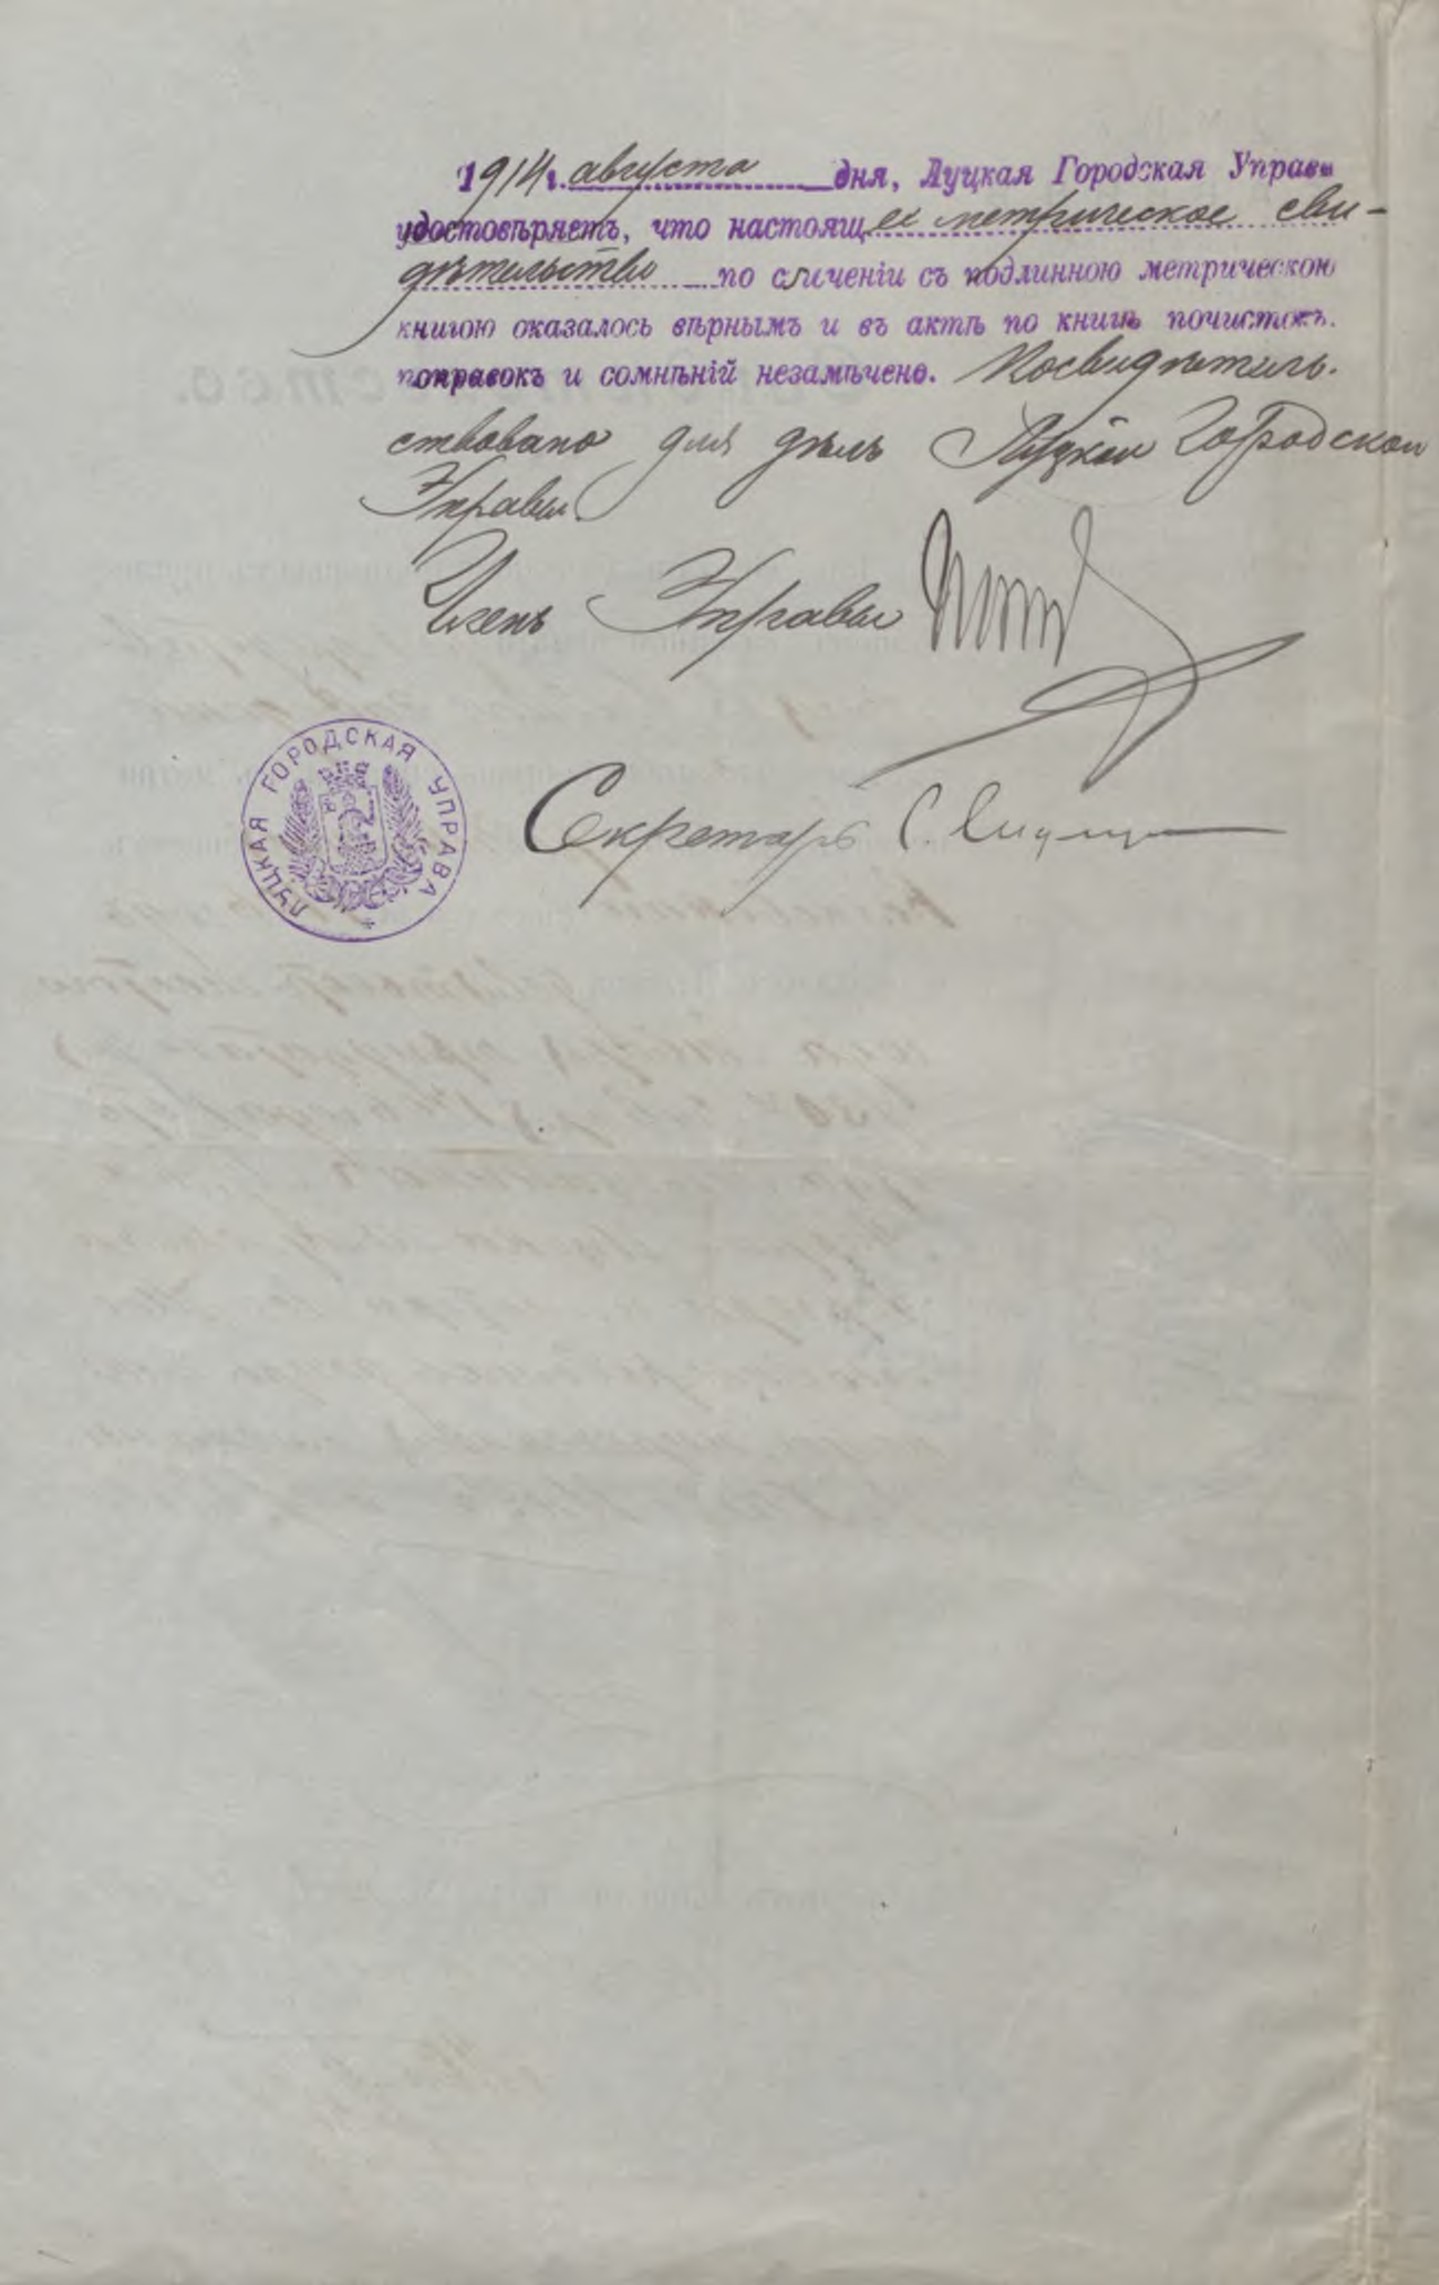 1914 г. августа дня, Луцкая Городская Управа
удостовѣряетъ, что настоящее метрическое сви-
дѣтельство по сличеніи съ подлинною метрическою
книгою оказалось вѣрнымъ и въ актѣ по книгѣ почистокъ.
поправокъ и сомнѣній незамѣчено. Посвидѣтель-
ствовано для дѣлъ Луцкой Городской
Управы.
Членъ Управы
Секретарь С.
ЛУЦКАЯ ГОРОДСКАЯ УПРАВА